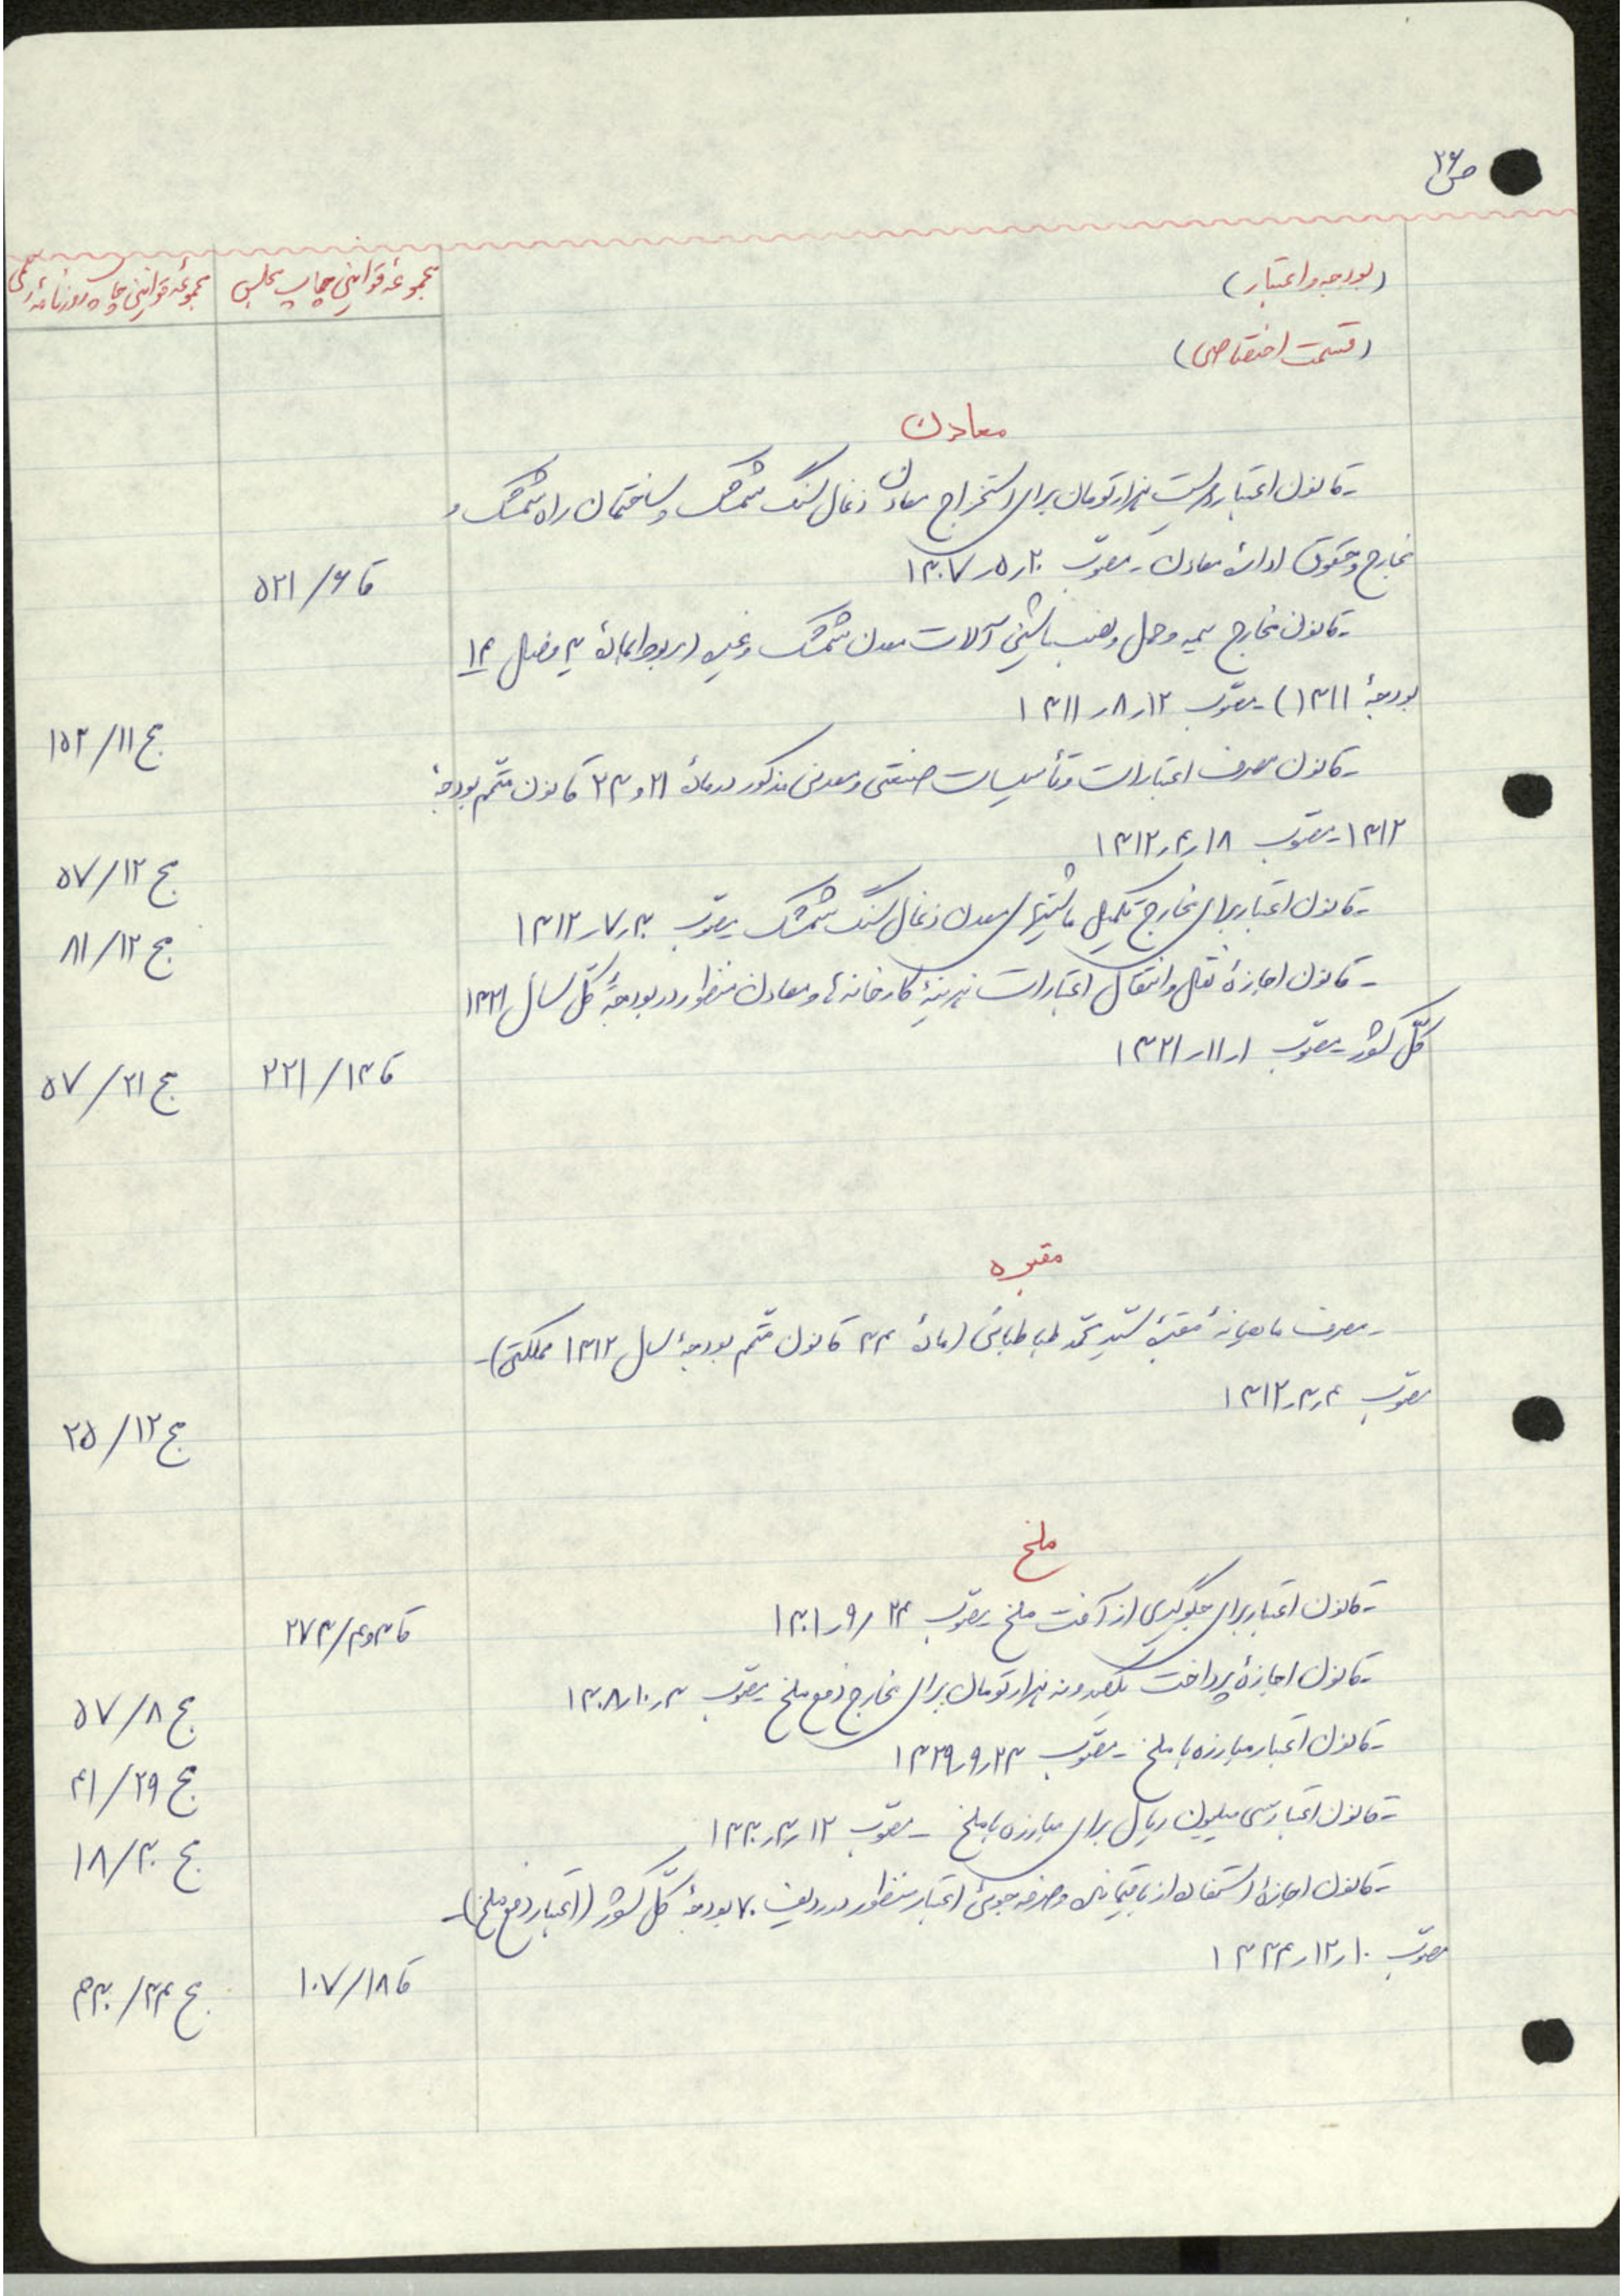 ص۲۶
(بودجه و اعتبار)
مجموعهٔ قوانین چاپ مجلس
مجموعهٔ قوانین چاپ روزنامهٔ رسمی
(قسمت اختصاصی)
معادن
ـ قانون اعتبار دویست هزار تومان برای استخراج معادن ذغال سنگ شمشک و ساختمان راه شمشک و
مخارج و حقوق ادارهٔ معادن ـ مصوّب ۲۰ر۵ر۱۳۰۷
قا ۶/۵۲۱
ـ قانون مخارج بیمه و حمل و نصب ماشین آلات معدن شمشک و غیره (مربوط بمادهٔ ۳ فصل ۱۴
بودجهٔ ۱۳۱۱) ـ مصوّب ۱۲ر۸ر۱۳۱۱
مج ۱۱/۱۵۲
ـ قانون مصرف اعتبارات و تأسیسات صنعتی و معدنی مذکور در مادهٔ ۲۱ و ۲۳ قانون متمّم بودجهٔ
۱۳۱۲ ـ مصوّب ۱۸ر۴ر۱۳۱۲
مج ۱۲/۵۷
ـ قانون اعتبار برای مخارج تکمیل ماشینهای معدن ذغال سنگ شمشک ـ مصوّب ۳۰ر۷ر۱۳۱۲
مج ۱۲/۸۱
ـ قانون اجازهٔ نقل و انتقال اعتبارات هزینهٔ کارخانه‌ها و معادن منظور در بودجهٔ کلّ سال ۱۳۲۱
کلّ کشور ـ مصوّب ۱ر۱۱ر۱۳۲۱
قا ۱۳/۲۲۱
مج ۲۱/۵۷
مقبره
ـ مصرف ماهیانهٔ مقبرهٔ سیّد محمّد طباطبائی (مادهٔ ۳۴ قانون متمّم بودجهٔ سال ۱۳۱۲ مملکتی) ـ
مصوّب ۴ر۳ر۱۳۱۲
مج ۱۲/۲۵
ملخ
ـ قانون اعتبار برای جلوگیری از آفت ملخ ـ مصوّب ۲۴ر۹ر۱۳۰۱
قا ۳و۴/۲۷۳
ـ قانون اجازهٔ پرداخت یکصد و نه هزار تومان برای مخارج دفع ملخ ـ مصوّب ۳ر۱۰ر۱۳۰۸
مج ۸/۵۷
ـ قانون اعتبار مبارزه با ملخ ـ مصوّب ۲۳ر۹ر۱۳۲۹
مج ۲۹/۴۱
ـ قانون اعتبار سی میلیون ریال برای مبارزه با ملخ ـ مصوّب ۱۲ر۳ر۱۳۳۰
مج ۳۰/۱۸
ـ قانون اجازهٔ استفاده از باقیمانده و صرفه‌جوئی اعتبار منظور در ردیف ۷۰ بودجهٔ کلّ کشور (اعتبار دفع ملخ) ـ
مصوّب ۱۰ر۱۲ر۱۳۳۴
قا ۱۸/۱۰۷
مج ۳۴/